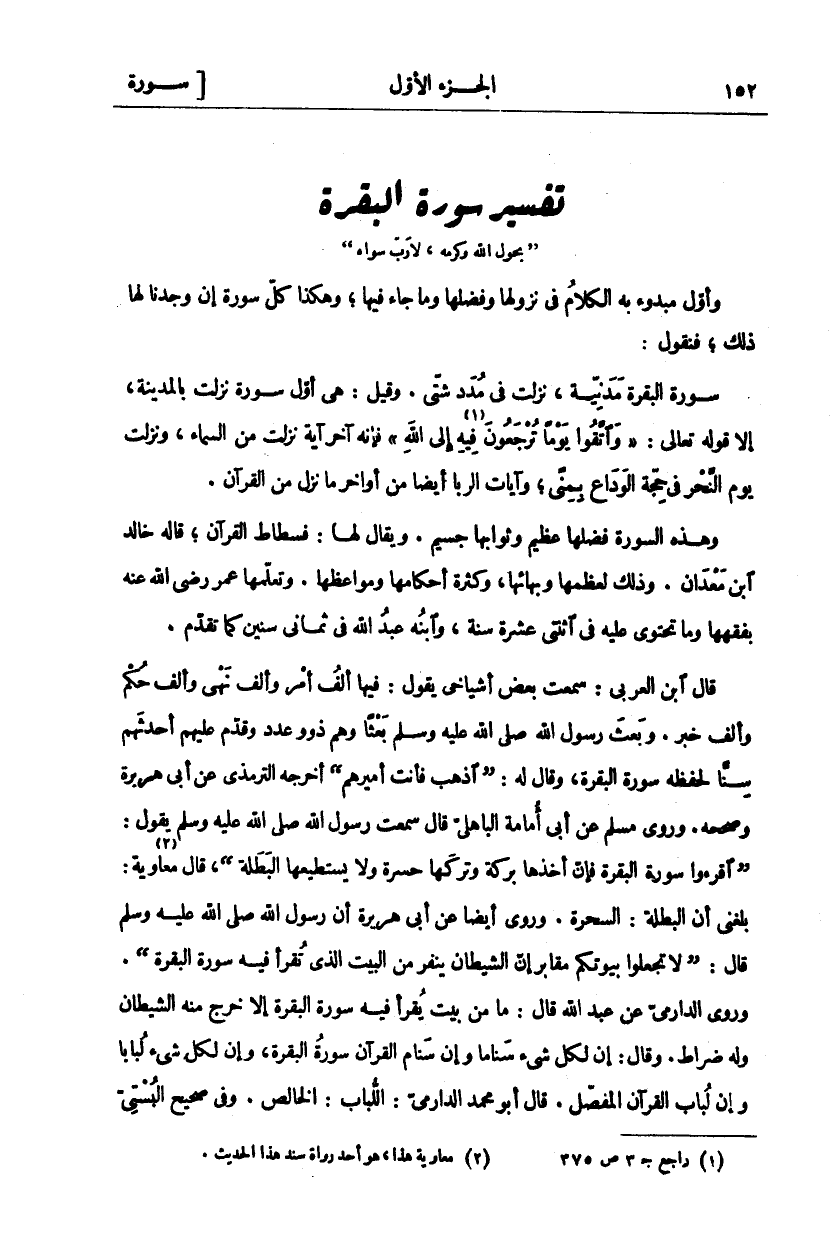 ١٥٢ الجـــزء الأوّل [ ســـورة
تفسير سورة البقرة
” بحول الله وكرمه ، لا ربّ سواه “
وأوّل مبدوء به الكلامُ فى نزولها وفضلها وما جاء فيها ؛ وهكذا كلّ سورة إن وجدنا لها
ذلك ؛ فنقول :
ســورة البقرة مَدَنيّــة ، نزلت فى مُدَد شتّى . وقيل : هى أوّل ســورة نزلت بالمدينة ،
إلا قوله تعالى : « وَٱتَّقُوا يَوْمًا تُرْجَعُونَ فِيهِ إلى اللهِ (١) » فإنه آخر آية نزلت من السماء ، ونزلت
يوم النَّحْر فى حِجّة الوَدَاع بِمِنًى ؛ وآيات الربا أيضا من أواخر ما نزل من القرآن .
وهــذه السورة فضلها عظيم وثوابها جسيم . ويقال لهــا : فسطاط القرآن ؛ قاله خالد
ٱبن مَعْدَان . وذلك لعظمها وبهائها ، وكثرة أحكامها ومواعظها . وتعلّمها عمر رضى الله عنه
بفقهها وما تحتوى عليه فى ٱثنتى عشرة سنة ، وٱبنُه عبدُ الله فى ثمـانى سنين كما تقدّم .
قال ٱبن العربى : سمعت بعض أشياخى يقول : فيها ألفُ أمْر وألف نَهْى وألف حُكْم
وألف خبر . وبَعثَ رسول الله صلى الله عليه وسـلم بَعْثًا وهم ذوو عدد وقدّم عليهم أحدثَهم
سِـنًّا لحفظه سورة البقرة ، وقال له : ” ٱذهب فأنت أميرهم “ أخرجه الترمذى عن أبى هريرة
وصححه . وروى مسلم عن أبى أُمامة الباهلىّ قال سمعت رسول الله صلى الله عليه وسلم يقول :
” ٱقرءوا سورة البقرة فإنّ أخذها بركة وتركَها حسرة ولا يستطيعها البَطَلة “ ، قال معاوية (٢) :
بلغنى أن البطلة : السحرة . وروى أيضا عن أبى هريرة أن رسول الله صلى الله عليــه وسلم
قال : ” لا تجعلوا بيوتكم مقابر إنّ الشيطان ينفر من البيت الذى تُقرأ فيــه سورة البقرة “ .
وروى الدارمىّ عن عبد الله قال : ما من بيت يُقرأ فيــه سورة البقرة إلا خرج منه الشيطان
وله ضراط . وقال : إن لكل شىء سَناما وإن سَنام القرآن سورةُ البقرة ، وإن لكل شىء لُبابا
وإن لُباب القرآن المفصّل . قال أبو محمد الدارمىّ : اللُّباب : الخالص . وفى صحيح البُسْتىّ
(١) راجع جـ ٣ ص ٣٧٥ (٢) معاوية هذا ، هو أحد رواة سند هذا الحديث .